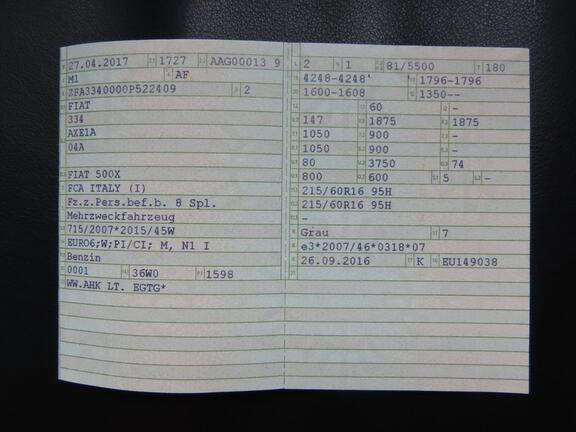 27.04.2017 1727 AAG00013 9
M1 AF
ZFA3340000P522409 2
FIAT
334
AXE1A
04A
FIAT 500X
FCA ITALY (I)
Fz.z.Pers.bef.b. 8 Spl.
Mehrzweckfahrzeug
715/2007*2015/45W
EURO6;W;PI/CI; M, N1 I
Benzin
0001 36W0 1598
WW.AHK LT. EGTG*
2 1 81/5500 180
4248-4248' 1796-1796
1600-1608 1350--
60 -
147 1875 1875
1050 900 -
1050 900 -
80 3750 74
800 600 5 -
215/60R16 95H
215/60R16 95H
-
Grau 7
e3*2007/46*0318*07
26.09.2016 K EU149038